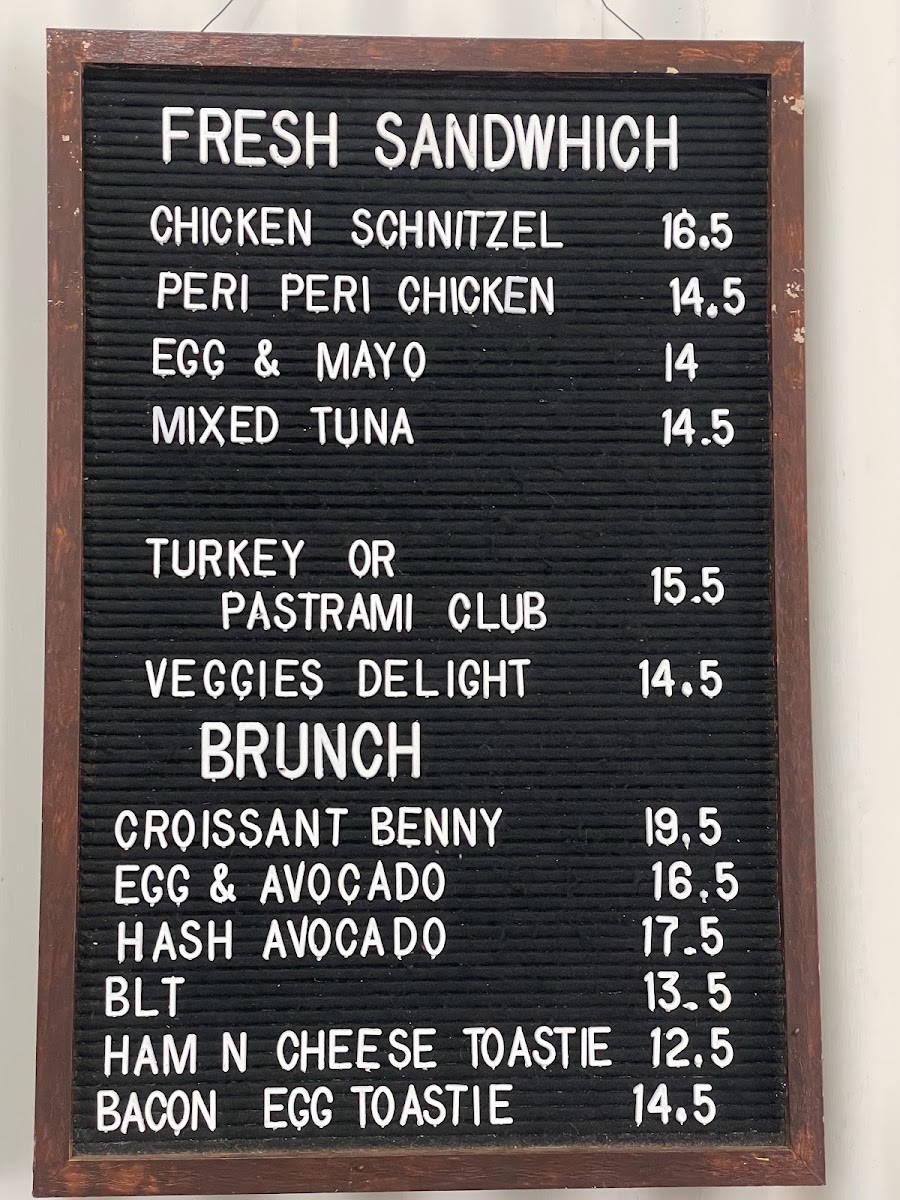 FRESH SANDWHICH
CHICKEN SCHNITZEL 16.5
PERI PERI CHICKEN 14.5
EGG & MAYO 14
MIXED TUNA 14.5
TURKEY OR
PASTRAMI CLUB 15.5
VEGGIES DELIGHT 14.5
BRUNCH
CROISSANT BENNY 19,5
EGG & AVOCADO 16,5
HASH AVOCADO 17.5
BLT 13.5
HAM N CHEESE TOASTIE 12.5
BACON EGG TOASTIE 14.5